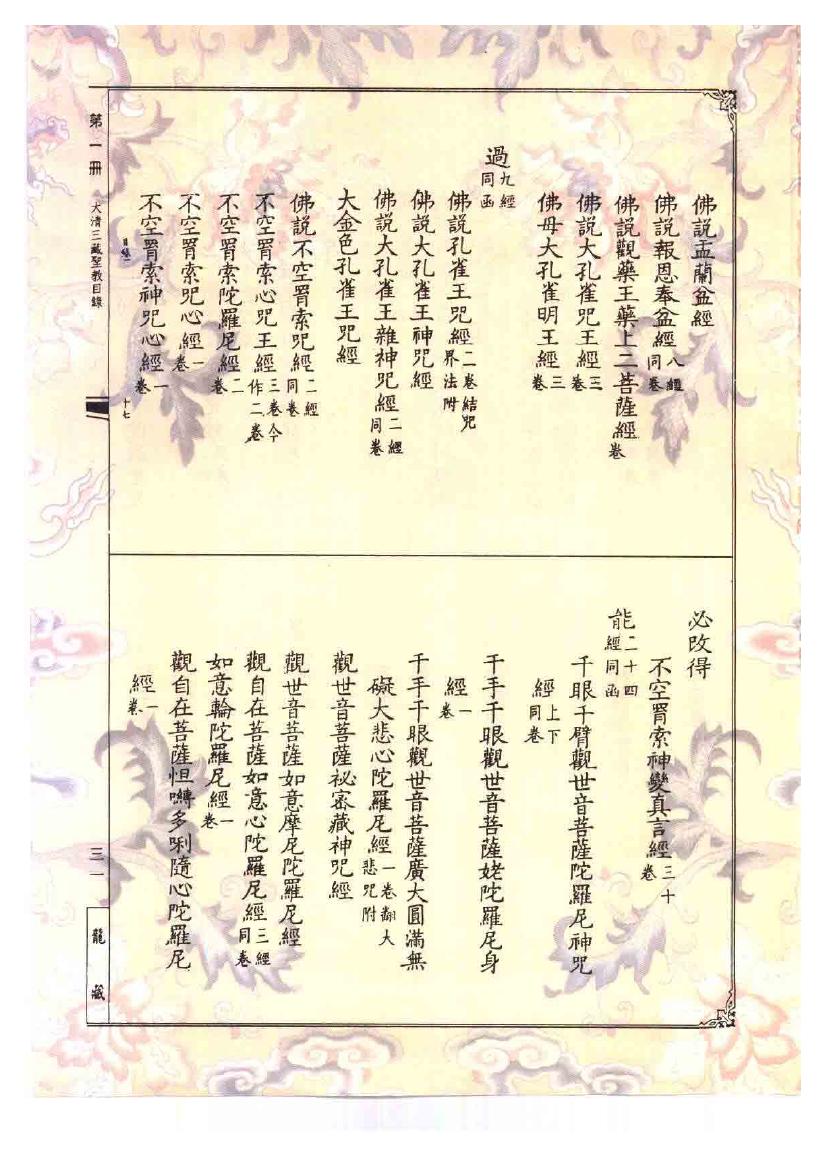 佛說盂蘭盆經
佛說報恩奉盆經八經同卷
佛說觀藥王藥上二菩薩經卷
佛說大孔雀咒王經三卷
佛母大孔雀明王經三卷
過九經同函
佛說孔雀王咒經二卷結咒界法附
佛說大孔雀王神咒經
佛說大孔雀王雜神咒經二經同卷
大金色孔雀王咒經
佛說不空罥索咒經二經同卷
不空罥索心咒王經三卷今作二卷
不空罥索陀羅尼經二卷
不空罥索咒心經一卷
不空罥索神咒心經一卷
必改得
不空罥索神變真言經三十卷
能二十四經同函
千眼千臂觀世音菩薩陀羅尼神咒
經上下同卷
千手千眼觀世音菩薩姥陀羅尼身
經一卷
千手千眼觀世音菩薩廣大圓滿無
礙大悲心陀羅尼經一卷翻大悲咒附
觀世音菩薩祕密藏神咒經
觀世音菩薩如意摩尼陀羅尼經
觀自在菩薩如意心陀羅尼經三經同卷
如意輪陀羅尼經一卷
觀自在菩薩怛嚩多唎隨心陀羅尼
經一卷
第一冊 大清三藏聖教目錄 十七
三一
龍藏